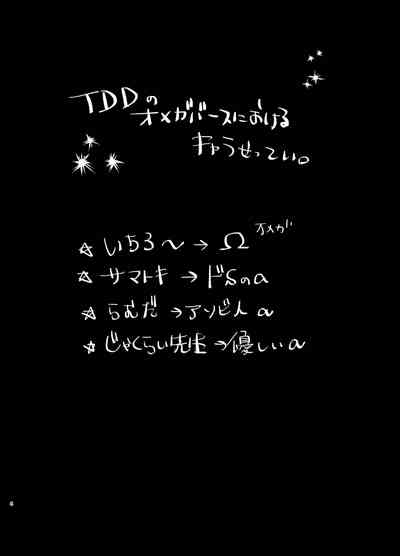 TDDの
オメガバースにおける
キャラせってい。
☆ いちろ〜 → Ω オメガ
☆ サマトキ → ドSのα
☆ らむだ → アソビ人 α
☆ じゃくらい先生 → 優しいα